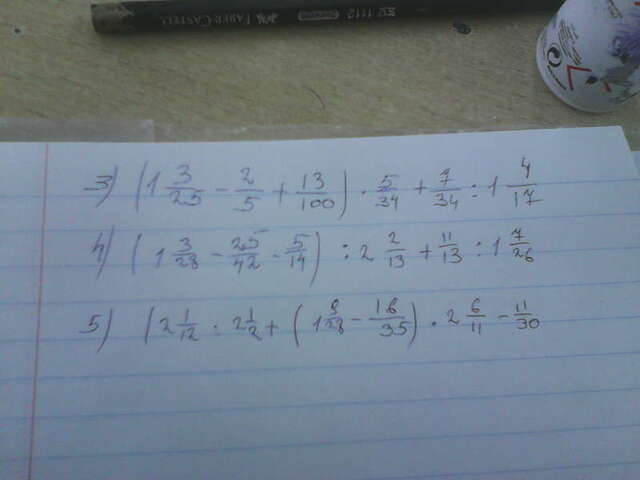 FABER CASTELL 1112
3) (1 3/25 - 2/5 + 13/100) · 5/34 + 7/34 : 1 4/17
4) (1 3/28 - 25/42 - 5/14) : 2 2/13 + 11/13 : 1 7/26
5) (2 1/12 · 2 1/2 + (1 9/28 - 16/35) · 2 6/11 - 11/30